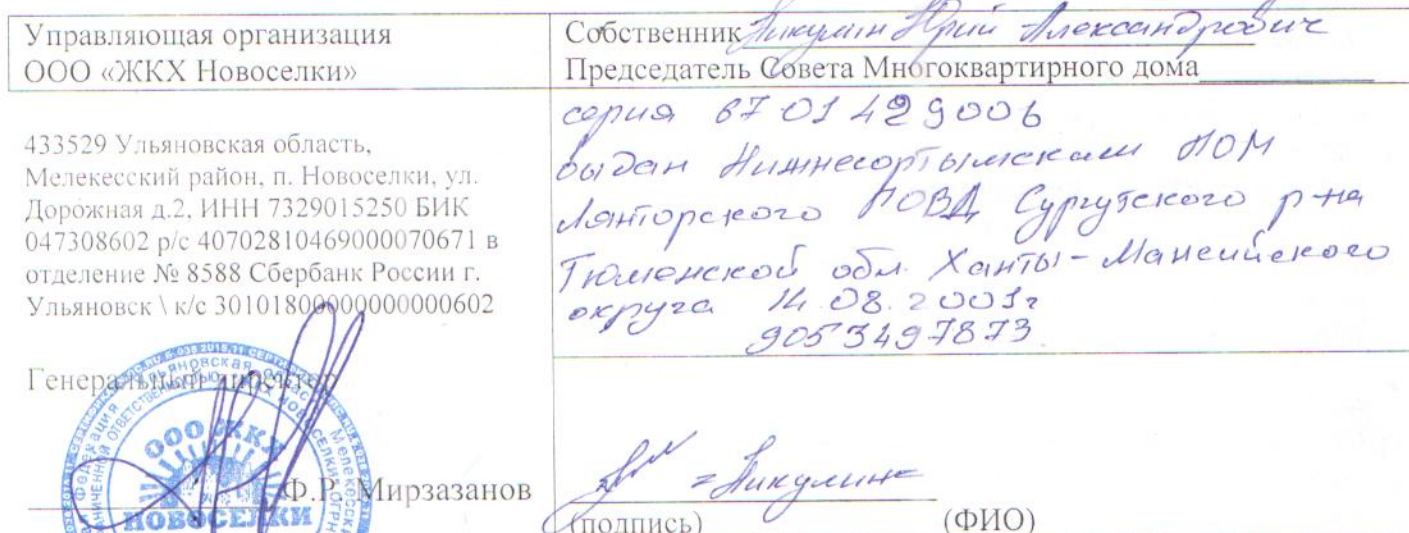 Управляющая организация
ООО «ЖКХ Новоселки»
433529 Ульяновская область,
Мелекесский район, п. Новоселки, ул.
Дорожная д.2, ИНН 7329015250 БИК
047308602 р/с 40702810469000070671 в
отделение № 8588 Сбербанк России г.
Ульяновск \ к/с 30101800000000000602
Генеральный директор
Ф.Р. Мирзазанов
ООО ЖКХ
НОВОСЕЛКИ
Собственник Никулин Юрий Александрович
Председатель Совета Многоквартирного дома
серия 67 01 429006
выдан Нижнесортымским ПОМ
Лянторского ГОВД Сургутского р-на
Тюменской обл. Ханты-Мансийского
округа 14.08.2001г
9053497873
Никулин
(подпись) (ФИО)